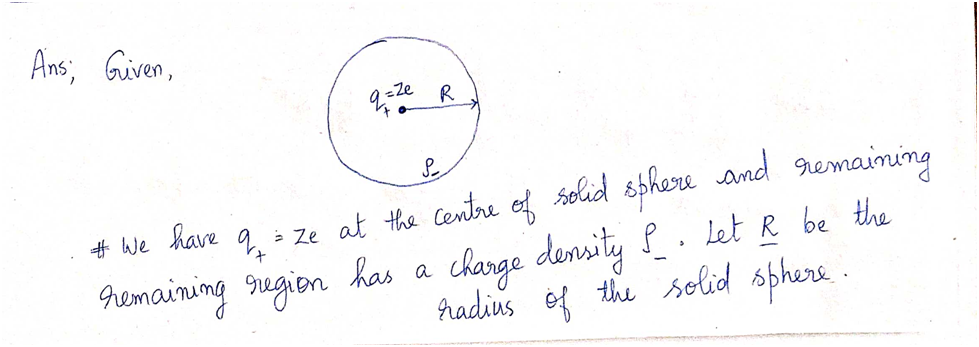 Ans; Given,
q₊=Ze R
ρ₋
# We have q₊ = Ze at the centre of solid sphere and remaining
remaining region has a charge density ρ₋. Let R be the
radius of the solid sphere.